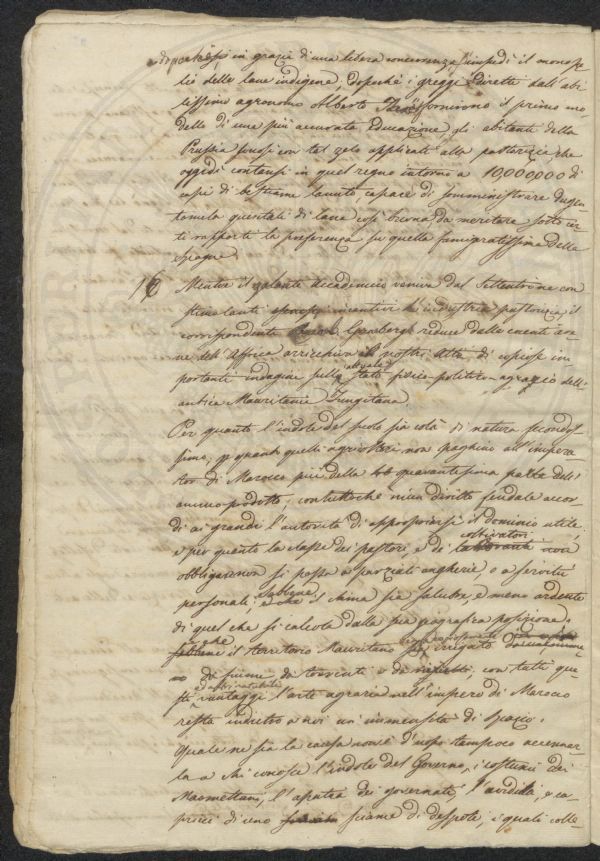 in grazia di una libera concorrenza impedì il monopo-
lio delle lane indigene, dopoché i greggi diretti dall'abi-
lissimo agronomo Alberto fornirono il primo mo-
dello di una più accurata educazione gli abitanti della
Prussia con tal zelo applicati alla pastorizia che
oggidì contansi in quel regno intorno a 10,000,000 di
capi di bestiame lanuto, capace di somministrare dugen-
tomila quintali di lana così buona da meritare sotto cer-
ti rapporti la preferenza su quella famigeratissima della
Spagna.
16 Mentre il zelante Accademico veniva dal Settentrione con
incentivi industria pastorizia il
corrispondente Graberg reduce dalle cocenti are-
ne dell'Affrica arricchiva i nostri Atti di copiose im-
portanti indagini sullo attuale stato fisico-politico-agrario dell'
antica Mauritania Tingitana.
Per quanto l'indole del suolo sia colà di natura fecondis-
sima, quelli agricoltori non paghino all'impera-
tor di Marocco più della quarantesima parte dell'
annuo prodotto, contuttoché niun diritto feudale accor-
di ai grandi l'autorità di appropriarsi il dominio utile,
e per quanto la classe dei pastori, e di coltivatori non
si possa a parziali angherie o a servitù
personali, sebbene il clima sia salubre, e meno ardente
di quel che si calcola dalla sua geografica posizione,
che il territorio Mauritano irrigato
da fiumi da torrenti o da ruscelli, con tutti que-
sti vantaggi l'arte agraria nell'impero di Marocco
resta indietro a noi un'immensità di spazio.
Quale ne sia la causa non è d'uopo tampoco accennar-
la a chi conosce l'indole del Governo, i costumi dei
Maomettani, l'apatia dei governati, l'avidità, e ca-
pricci di uno sciame di despoti, i quali colle